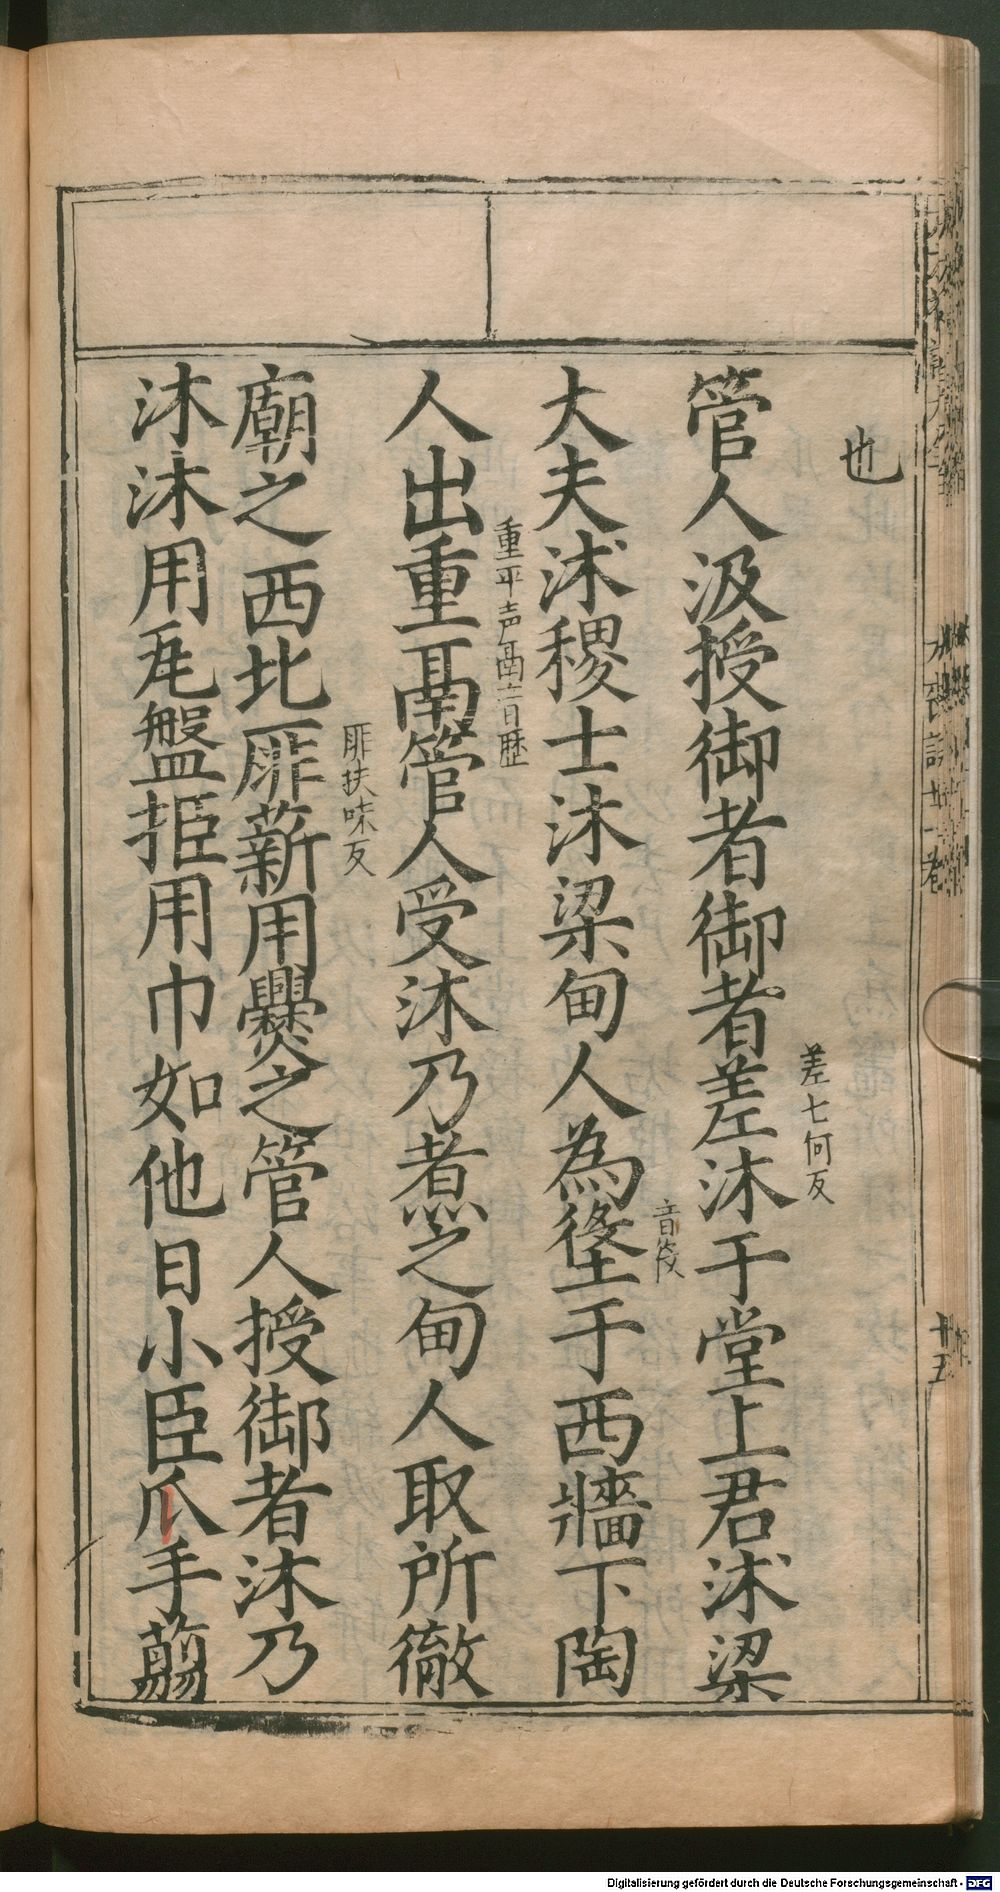 也
管人汲授御者御者差沐于堂上君沐粱
差七何反
大夫沐稷士沐梁甸人為垼于西牆下陶
音役
人出重鬲管人受沐乃煮之甸人取所徹
重平声鬲音歴
廟之西北厞薪用爨之管人授御者沐乃
厞扶味反
沐沐用瓦盤挋用巾如他日小臣爪手翦
喪
廿五
Digitalisierung gefördert durch die Deutsche Forschungsgemeinschaft - DFG